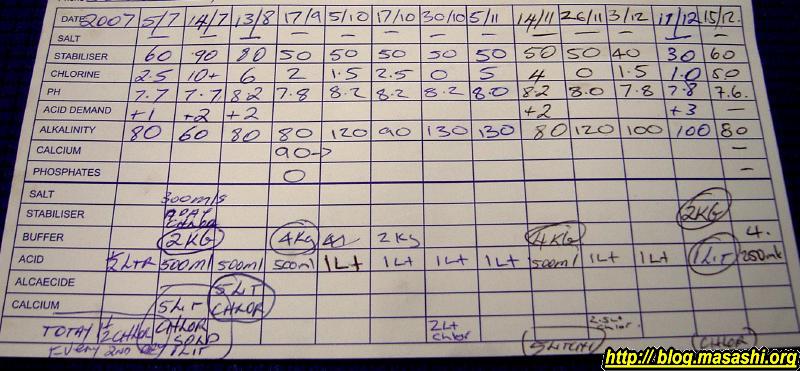 DATE 2007 5/7 14/7 13/8 17/9 5/10 17/10 30/10 5/11 14/11 26/11 3/12 17/12 15/12.
SALT — — — — — — — — — — — —
STABILISER 60 90 80 50 50 50 50 50 50 50 40 30 60
CHLORINE 2.5 10+ 6 2 1.5 2.5 0 5 4 0 1.5 1.0
PH 7.7 7.7 8.2 7.8 8.2 8.2 8.2 8.0 8.2 8.0 7.8 7.8 7.6.
ACID DEMAND +1 +2 +2 +2 +3 —
ALKALINITY 80 60 80 80 120 90 130 130 80 120 100 100 80
CALCIUM 90-> —
PHOSPHATES 0 —
SALT 300mls
STABILISER A DAY CHLOR 2KG
BUFFER 2KG 4Kg 2Kg 4KG 4.
ACID 1/2 LTR 500ml 500ml 500ml 1Lt 1Lt 1Lt 1Lt 500ml 1Lt 1Lt 1LIT 250ml
ALGAECIDE 5LIT
CALCIUM 5LIT CHLOR
TOTAY 1/2 CHLOR CHLOR 2Lt 2.5Lt
EVERY 2ND DAY 1LIT chlor chlor. CHLOR
http://blog.masashi.org